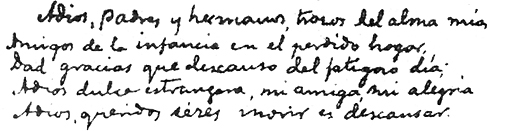 Adios, padres y hermanos, trozos del alma mia
Amigos de la infancia en el perdido hogar,
Dad gracias que descanso del fatigoso día;
Adios dulce estrangera, mi amiga mi alegria
Adios, queridos séres morir es descansar.